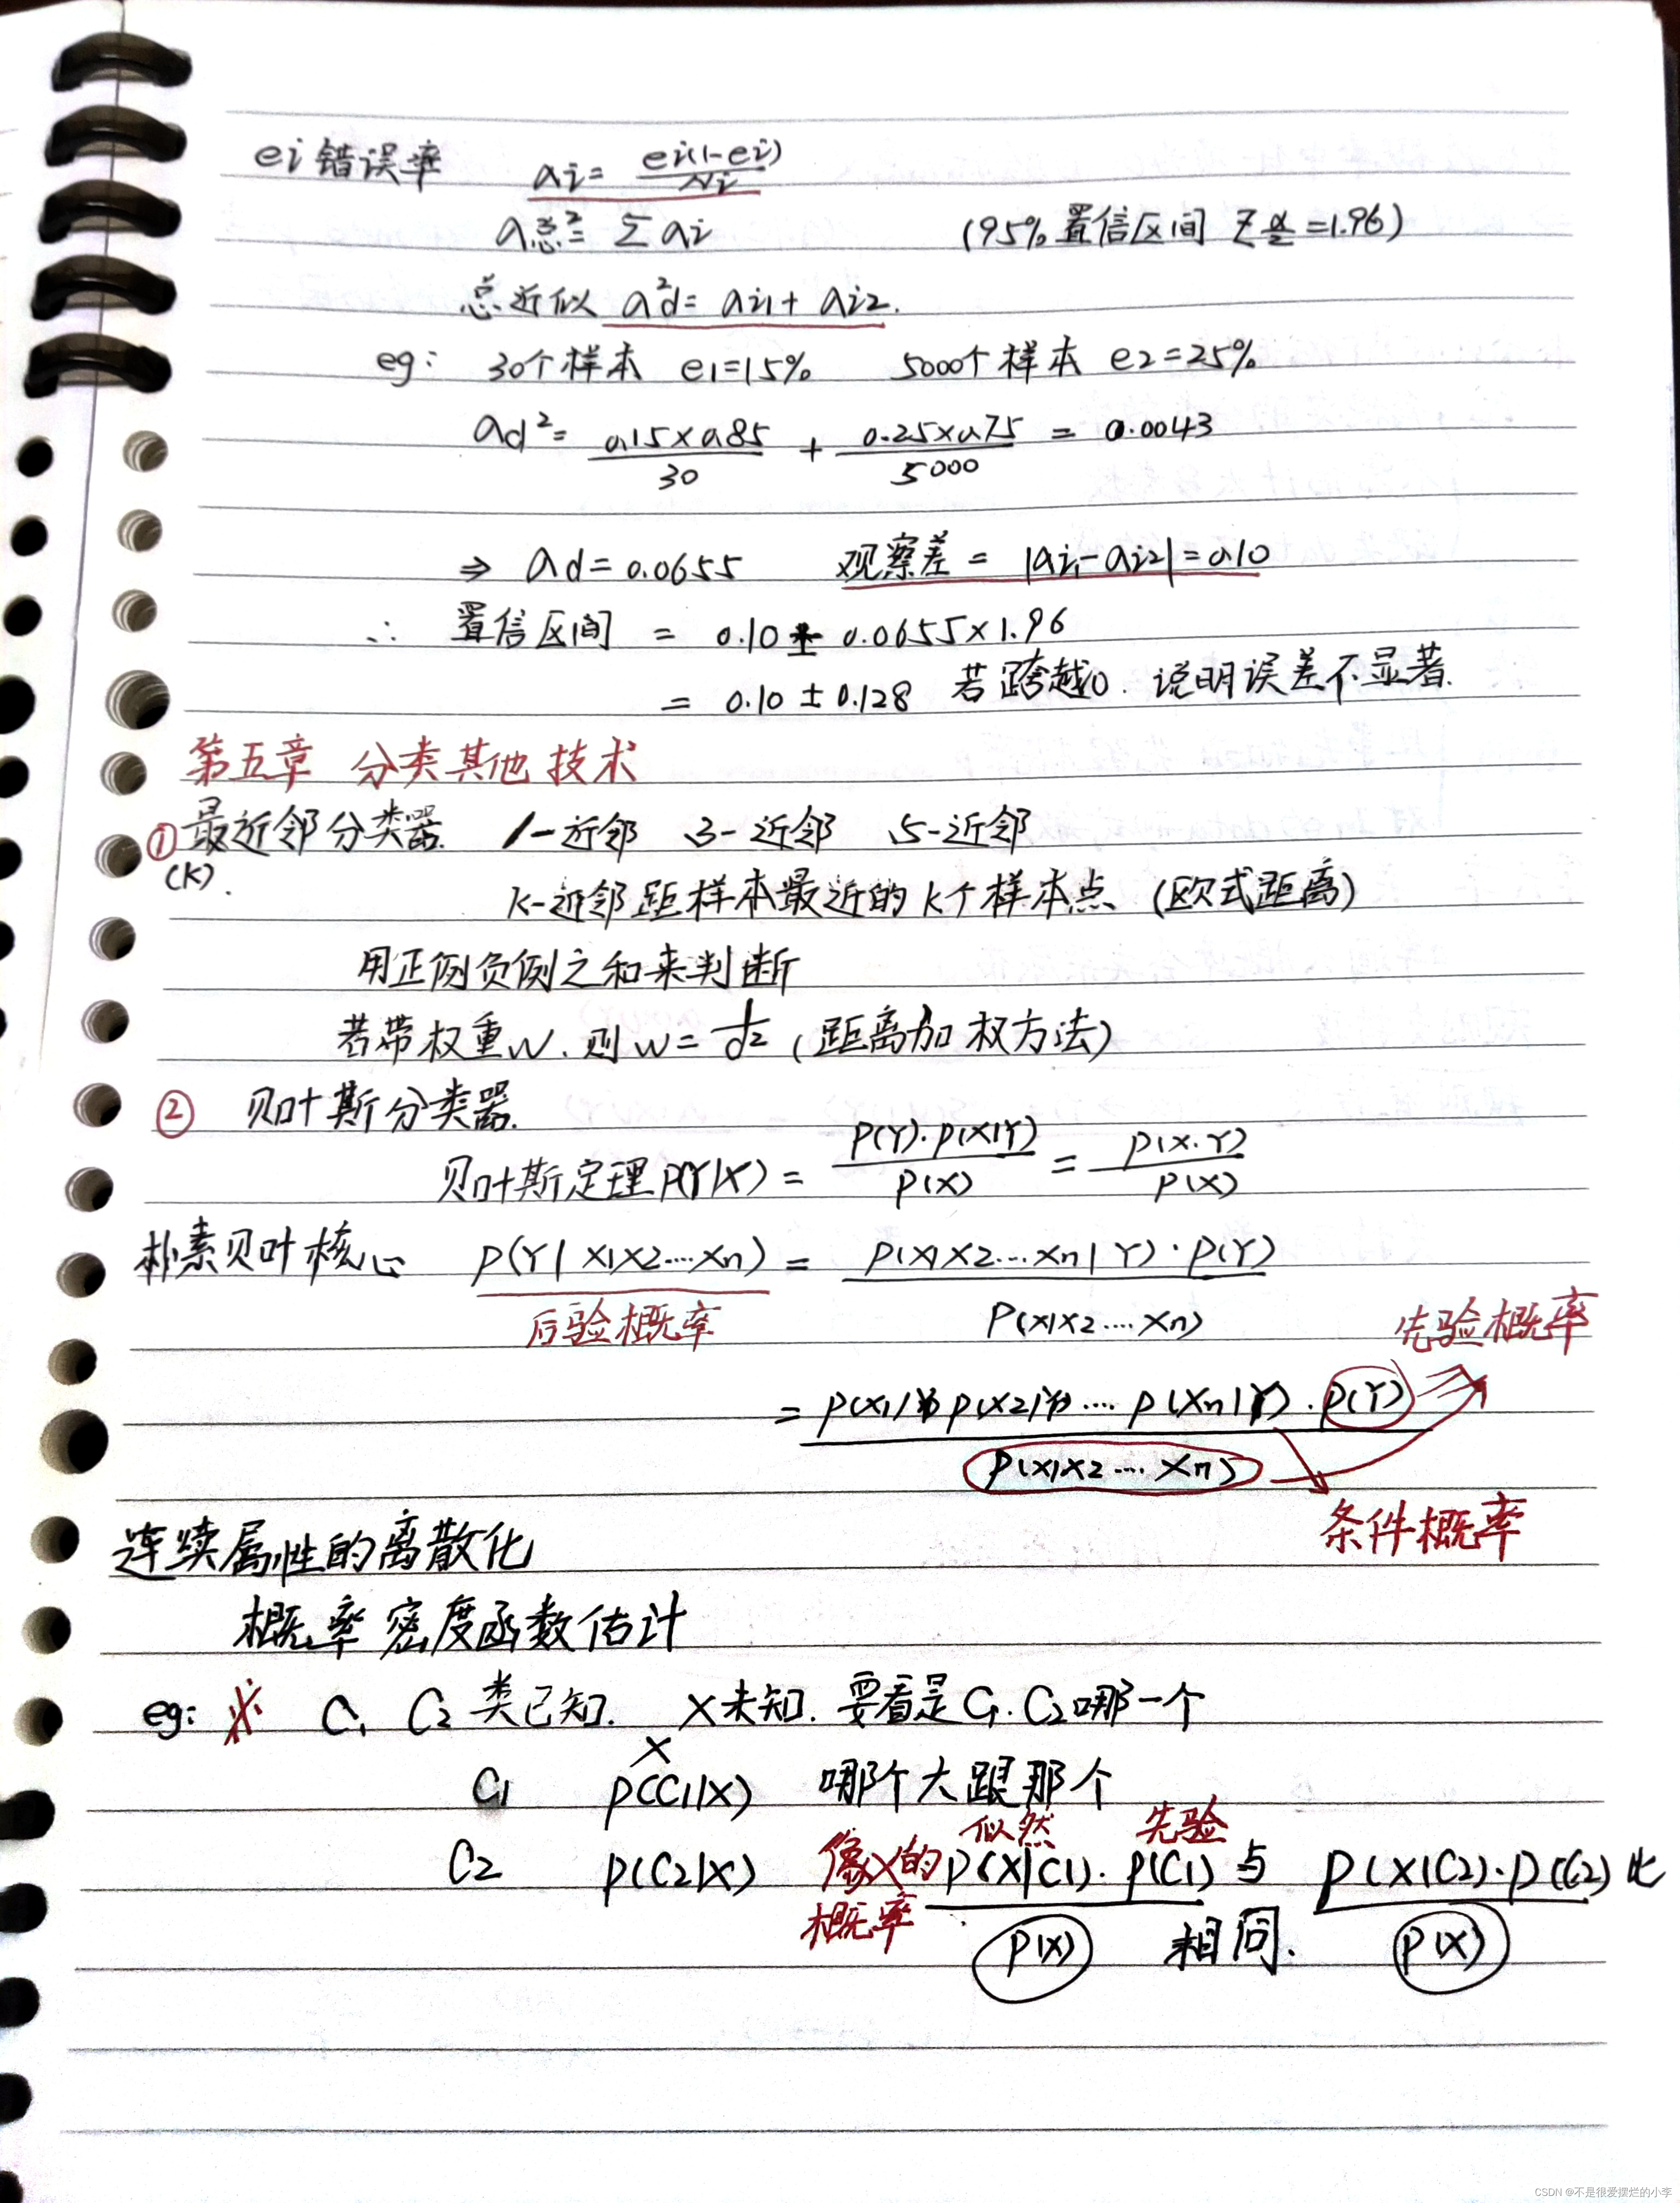 ei 错误率 ai = ei(1-ei)/Ni
a总² = Σ ai (95% 置信区间 Z α/2 = 1.96)
总近似 a²d = ai1 + ai2.
eg: 30个样本 e1=15% 5000个样本 e2=25%
ad² = 0.15×0.85/30 + 0.25×0.75/5000 = 0.0043
⇒ ad = 0.0655 观察差 = |ai1-ai2| = 0.10
∴ 置信区间 = 0.10 ± 0.0655×1.96
= 0.10 ± 0.128 若跨越0. 说明误差不显著.
第五章 分类其他技术
① 最近邻分类器 1-近邻 、3-近邻 、5-近邻
(K).
K-近邻 距样本最近的K个样本点 (欧式距离)
用正例负例之和来判断
若带权重W. 则 w = 1/d² (距离加权方法)
② 贝叶斯分类器.
贝叶斯定理 P(Y|X) = P(Y)·P(X|Y)/P(X) = P(X·Y)/P(X)
朴素贝叶核心 P(Y|X1X2...Xn) = P(X1X2...Xn|Y)·P(Y)/P(X1X2....Xn)
后验概率 先验概率
= P(X1|Y)P(X2|Y)....P(Xn|Y)·P(Y)/P(X1X2....Xn)
条件概率
连续属性的离散化
概率密度函数估计
eg: C1 C2 类已知. X未知. 要看是C1.C2哪一个
X
C1 P(C1|X) 哪个大跟那个
似然 先验
C2 P(C2|X) 像X的概率 P(X|C1)·P(C1)/P(X) 与 P(X|C2)·P(C2)/P(X) 比
相同.
CSDN @不是很爱摆烂的小李